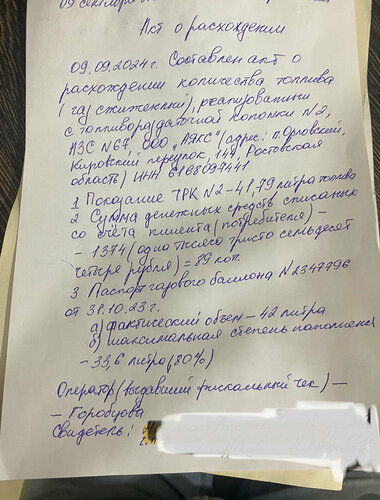 09 сентября
Акт о расхождении
09.09.2024г. Составлен акт о
расхождении количества топлива
(газ сжиженный), реализованном
с топливораздаточной колонки №2,
АЗС №67, ООО "АЯКС" (адрес: п.Орловский,
Кировский переулок, 144, Ростовская
область) ИНН 6168097441
1 Показание ТРК №2 – 41,79 литра топлива
2 Сумма денежных средств списаных
со счёта клиента (потребителя) –
– 1374 (одна тысяча тристо семьдесят
четыре рубля) = 89 коп.
3 Паспорт газового баллона №2347796
от 31.10.23г.
а) фактический объем – 42 литра
б) максимальная степень наполнения
– 33,6 литра (80%)
Оператор (выдавший фискальный чек) –
– Горобцова
Свидетель: